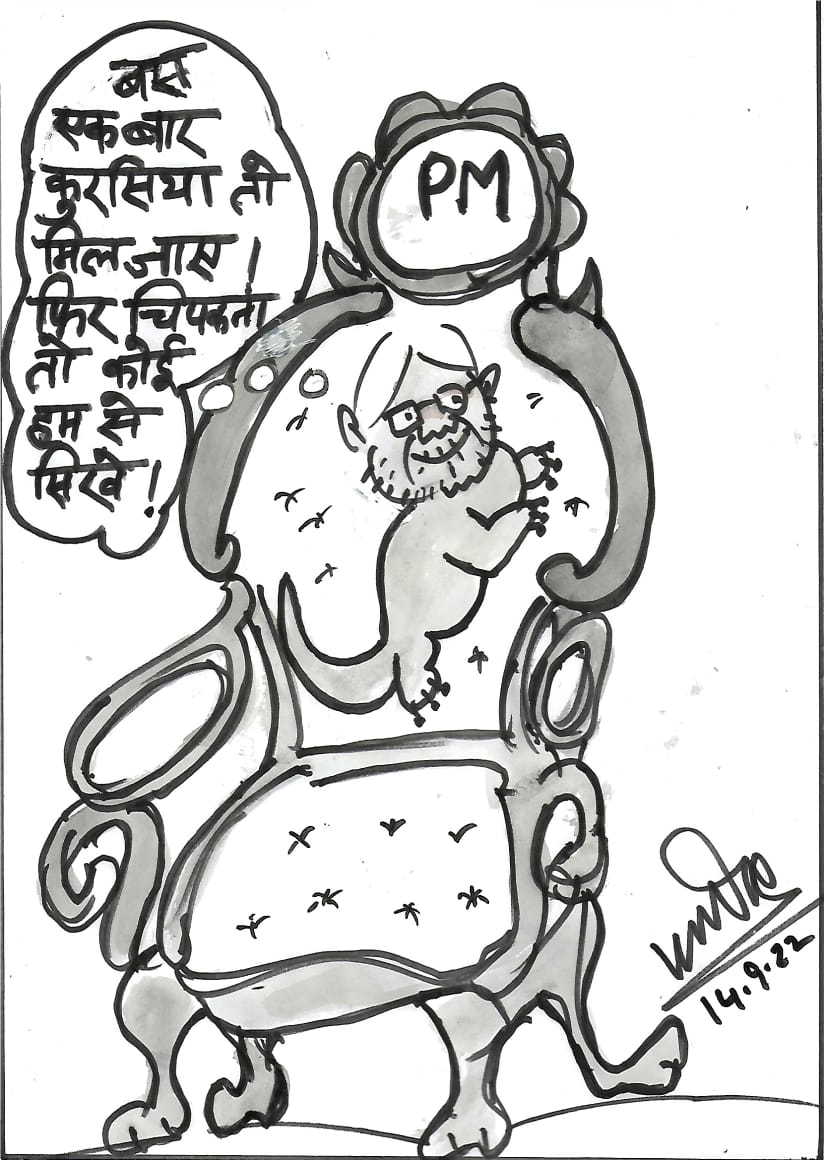 बस
एकबार
कुरसिया तो
मिल जाए।
फ़िर चिपकना
तो कोई
हम से
सिखे!
PM
14.9.22